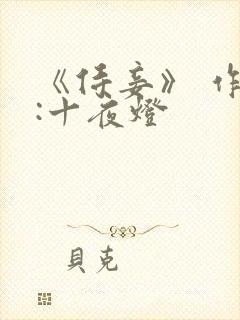 《侍妾》 作
:十夜燈
貝克